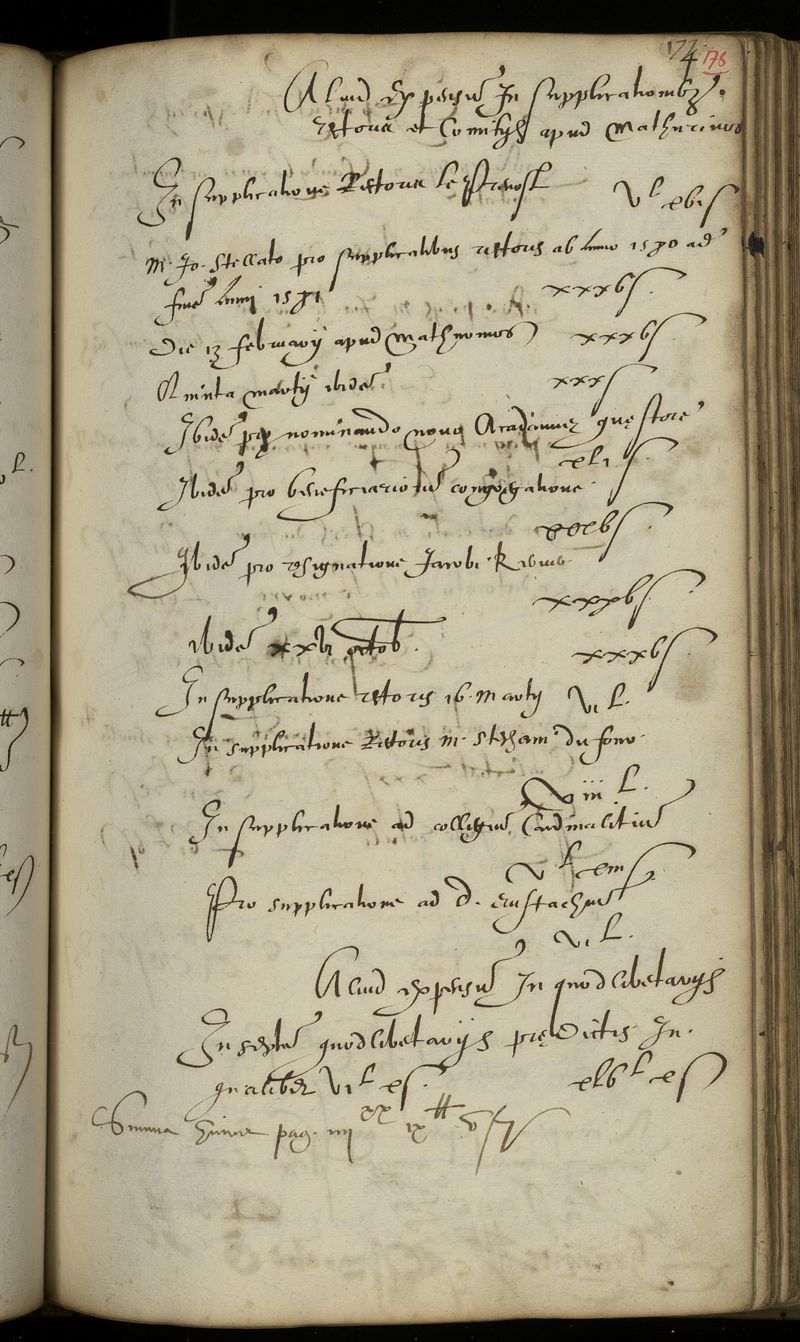 174
178
Aliud expensum In supplicationibus
rectoris et Comitijs apud Mathurinos
In supplicatione Rectoris le Prevost v l xvi s
M. Jo. Stellato pro supplicationibus rectoris ab Anno 1570 ad
finem Anni 1571 xxxv s
Die 13 februarij apud Mathurinos xxxv s
Quinta martij ibidem xxx s
Ibidem pro nominando novo Academiæ quęstore
xli s
Ibidem pro beneficiariorum congregatione
xxxv s
Ibidem pro resignatione Jacobi
xxxv s
ibidem xxvi octob. xxxv s
In supplicatione rectoris 16 martij vi l.
In supplicatione Rectoris M. du
viii l.
In supplicatione ad collegium Cardinalitium
v l xiii s
Pro supplicatione ad d. eustachium
vi l.
Aliud expensum In quodlibetarijs
In septem quodlibetarijs prędictis In
qualibet vi l x s. xlv l x s
Summa huius pag. iiii xx ix tt v s